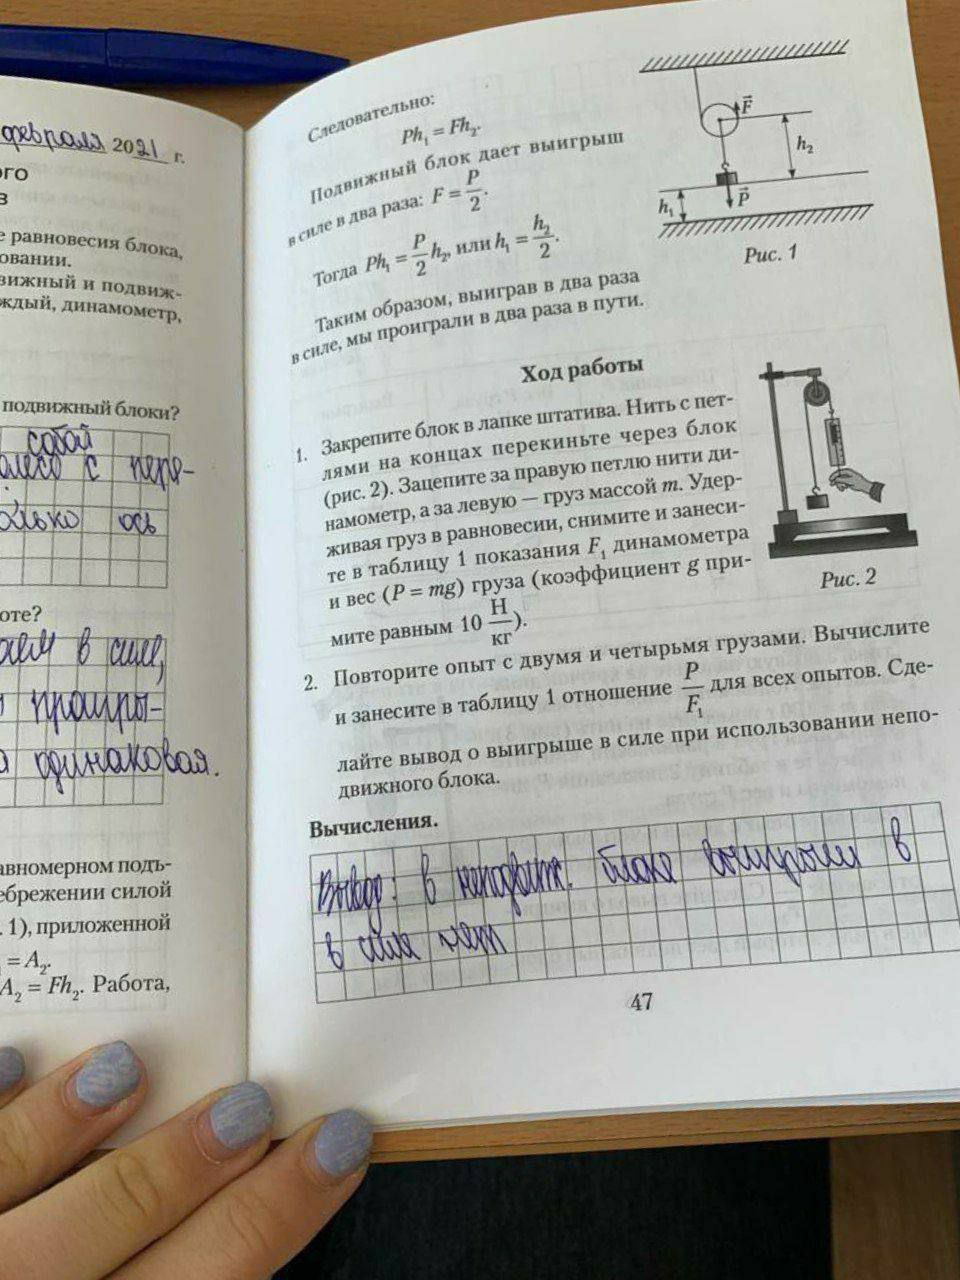 февраля 2021 г.
ого
в
е равновесия блока,
овании.
вижный и подвиж-
ждый, динамометр,
подвижный блоки?
собой
олесо с пере-
олько ось
оте?
аем в силе,
проигры-
а одинаковая.
авномерном подъ-
ебрежении силой
. 1), приложенной
= A₂.
A₂ = Fh₂. Работа,
Следовательно:
Ph₁ = Fh₂.
Подвижный блок дает выигрыш
в силе в два раза: F = P/2.
Тогда Ph₁ = P/2 h₂, или h₁ = h₂/2.
Таким образом, выиграв в два раза
в силе, мы проиграли в два раза в пути.
F
h₂
P
h₁
Рис. 1
Ход работы
1. Закрепите блок в лапке штатива. Нить с пет-
лями на концах перекиньте через блок
(рис. 2). Зацепите за правую петлю нити ди-
намометр, а за левую — груз массой m. Удер-
живая груз в равновесии, снимите и занеси-
те в таблицу 1 показания F₁ динамометра
и вес (P = mg) груза (коэффициент g при-
мите равным 10 Н/кг).
Рис. 2
2. Повторите опыт с двумя и четырьмя грузами. Вычислите
и занесите в таблицу 1 отношение P/F₁ для всех опытов. Сде-
лайте вывод о выигрыше в силе при использовании непо-
движного блока.
Вычисления.
Вывод: в неподвиж. блоке выигрыш в
в силе нет
47